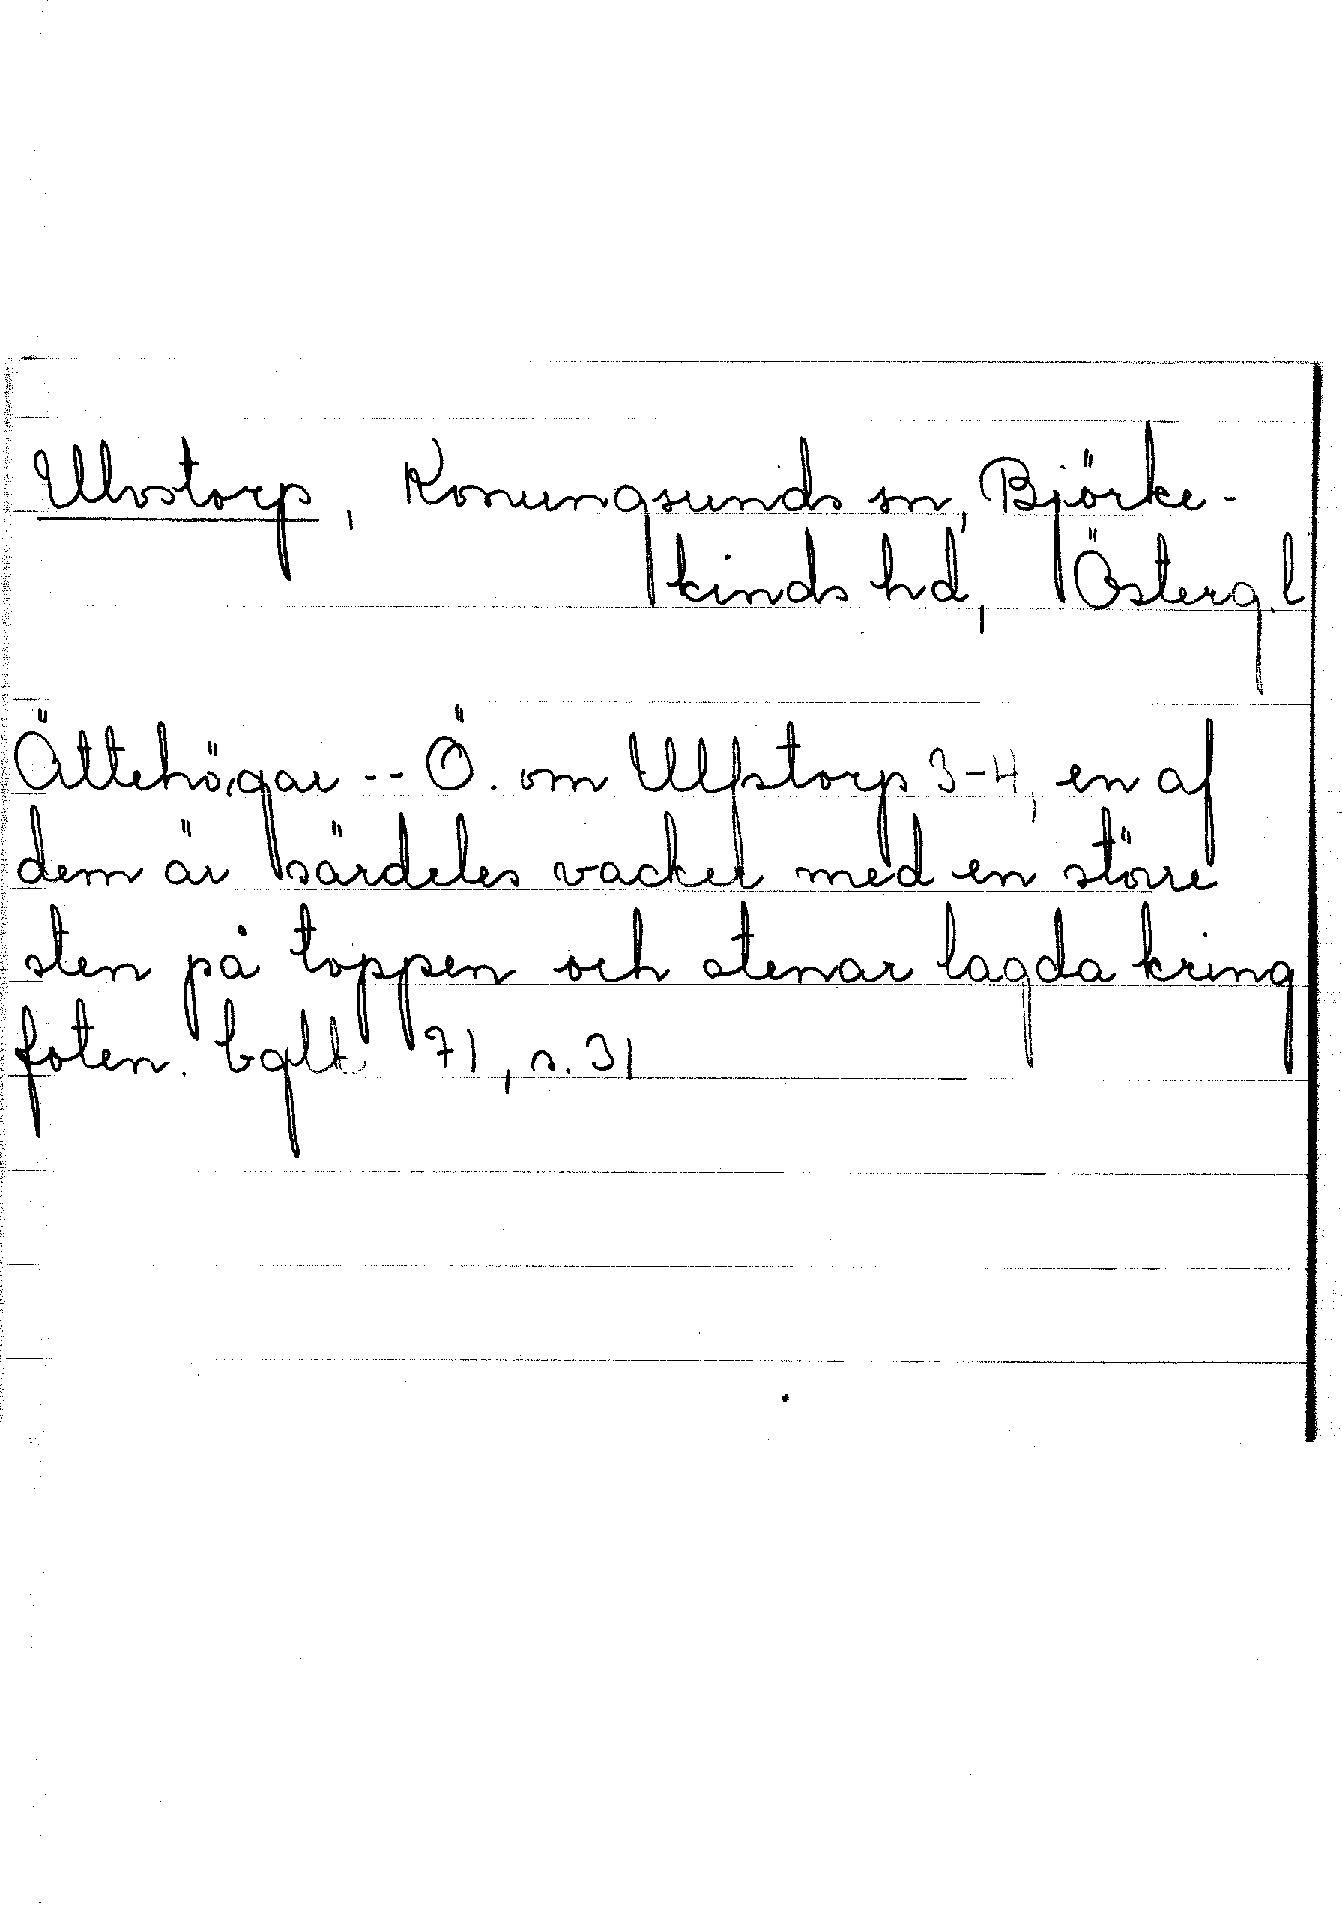 Ulvstorp, Konungsunds sn, Björke-
kinds hd, Österg.l
Ättehögar -- Ö. om Ulfstorp 3-4, en af
dem är särdeles vacker med en större
sten på toppen och stenar lagda kring
foten. bglt 71, s. 31